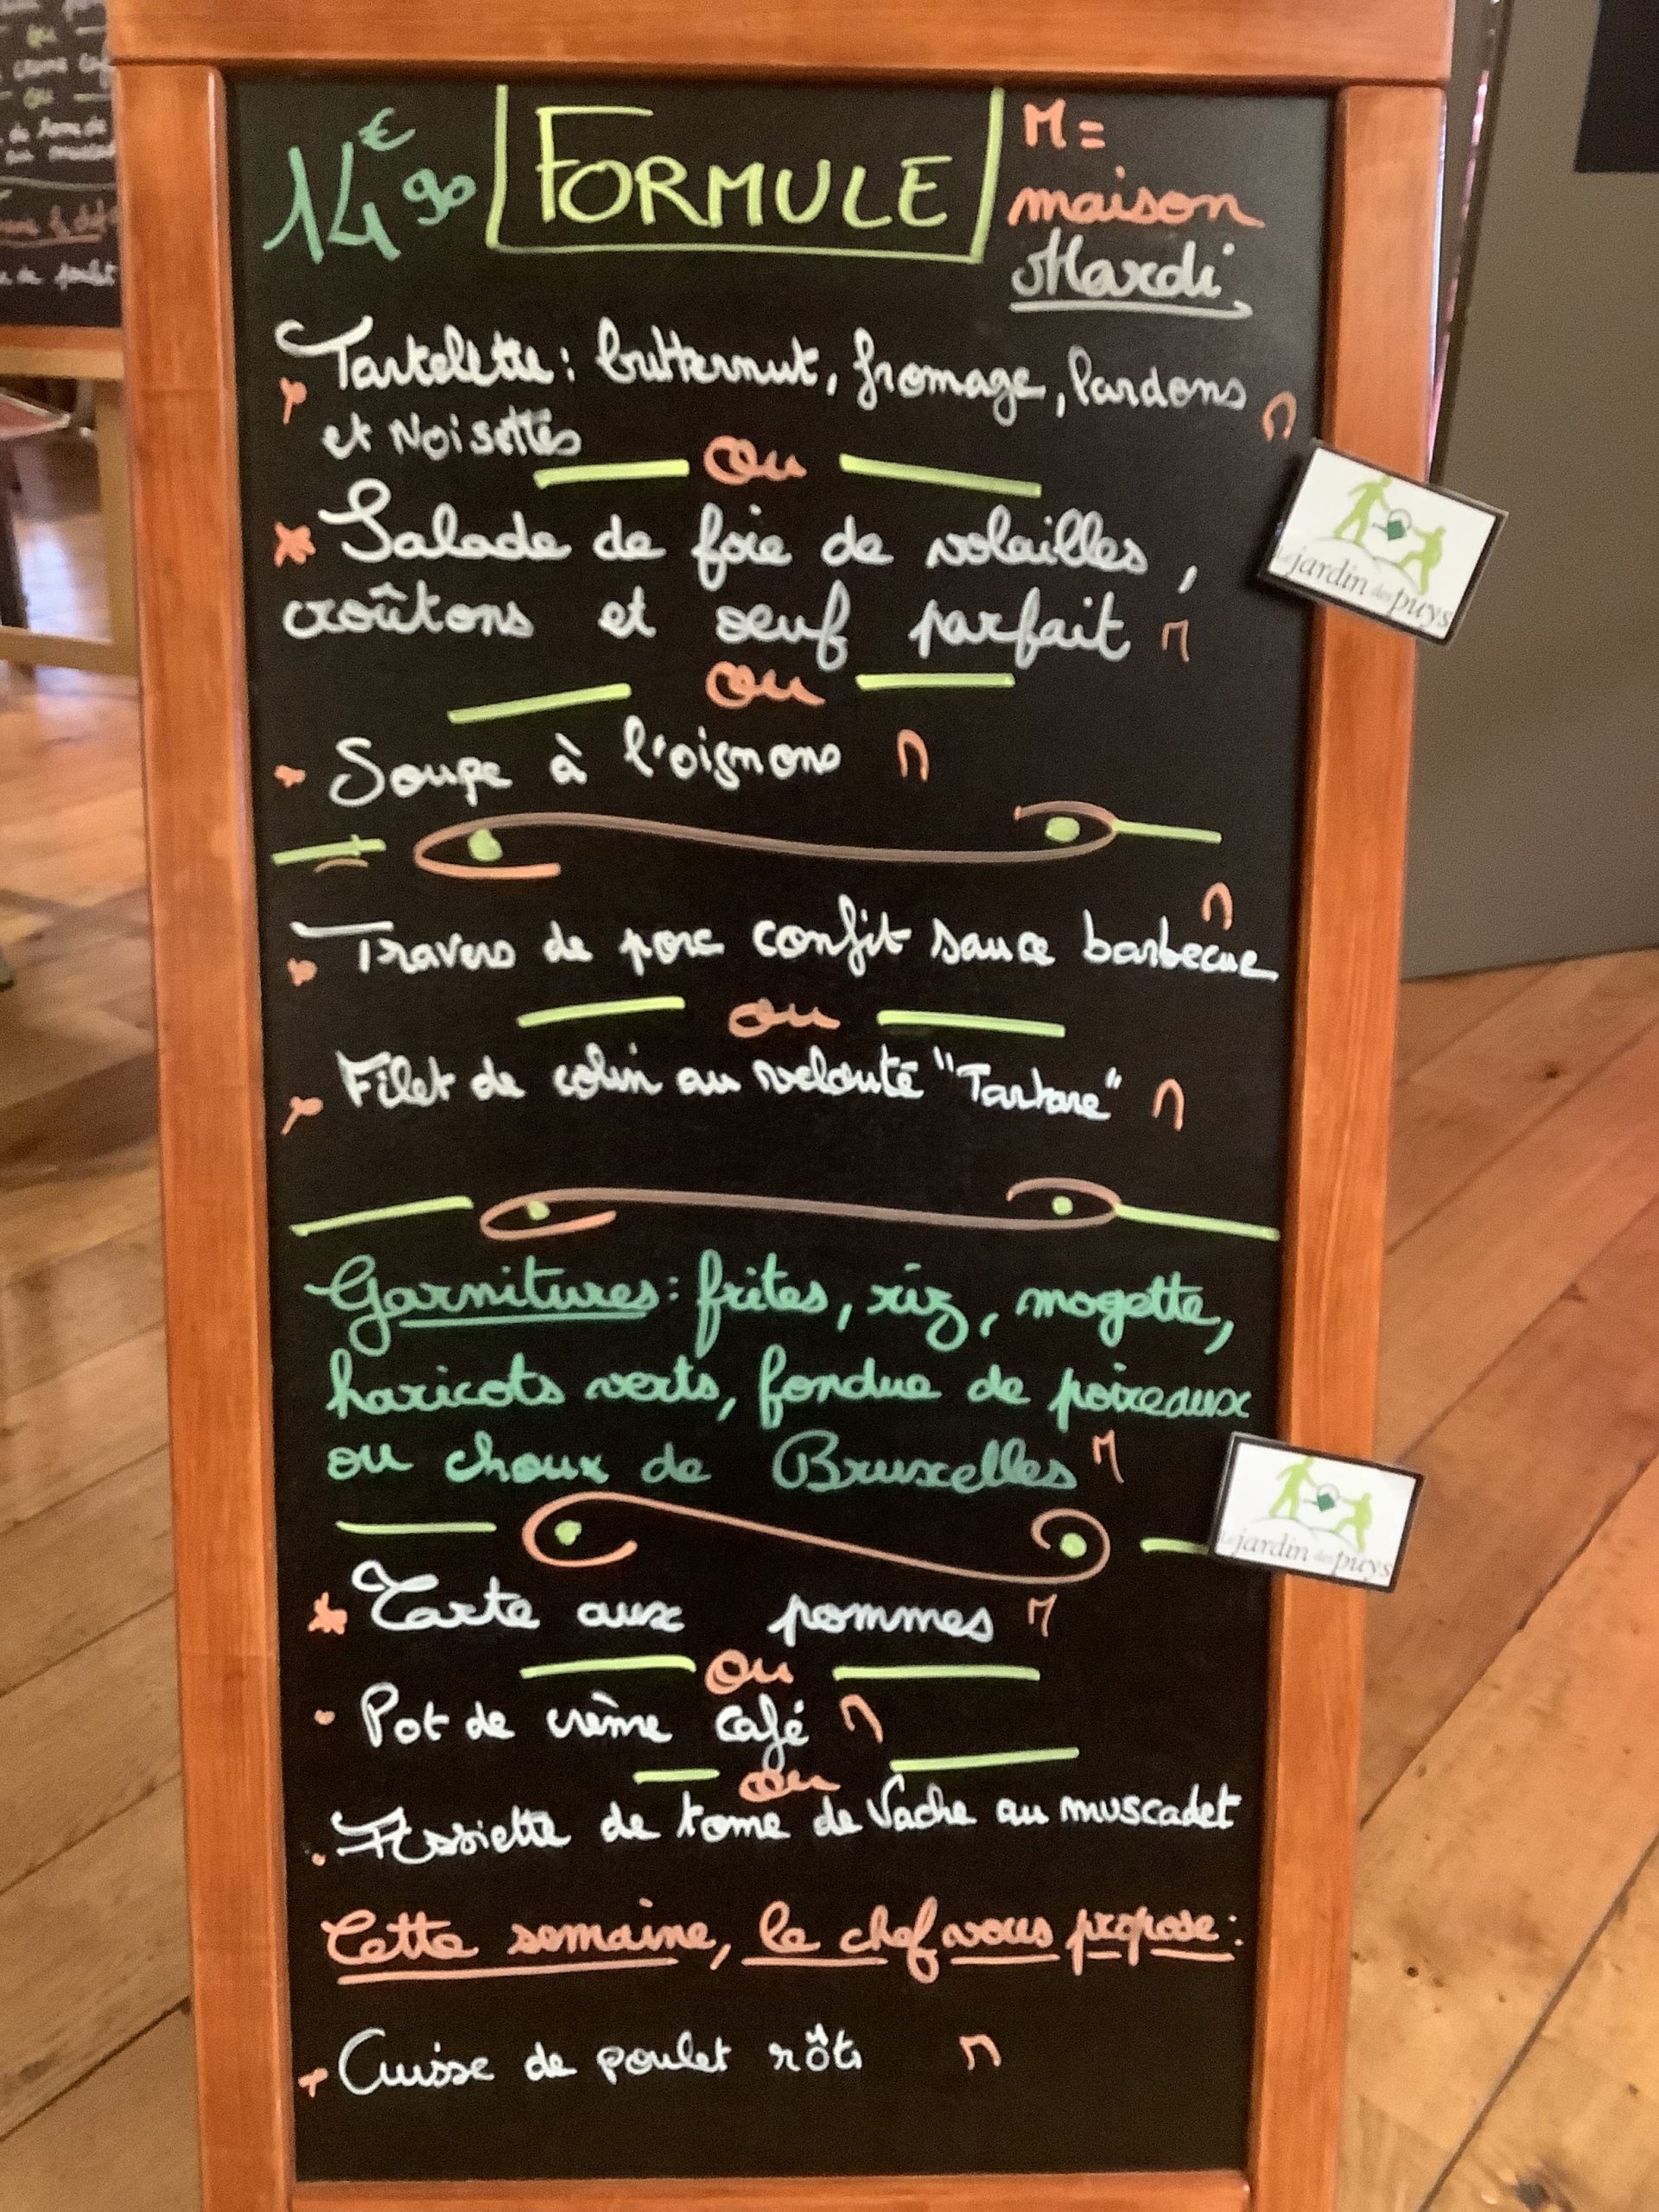 14€90 FORMULE M =
maison
Mardi
Tartelette : butternut, fromage, lardons M
et Noisettes
Ou
Salade de foie de volailles,
croûtons et oeuf parfait M
Ou
Soupe à l'oignons M
M
Travers de porc confit sauce barbecue
Ou
Filet de colin au velouté "Tartare" M
Garnitures : frites, riz, mogette,
haricots verts, fondue de poireaux
ou choux de Bruxelles M
Tarte aux pommes M
Ou
Pot de crème café M
Ou
Assiette de tome de Vache au muscadet
Cette semaine, le chef vous propose :
Cuisse de poulet rôti M
jardin des puys
jardin des puys